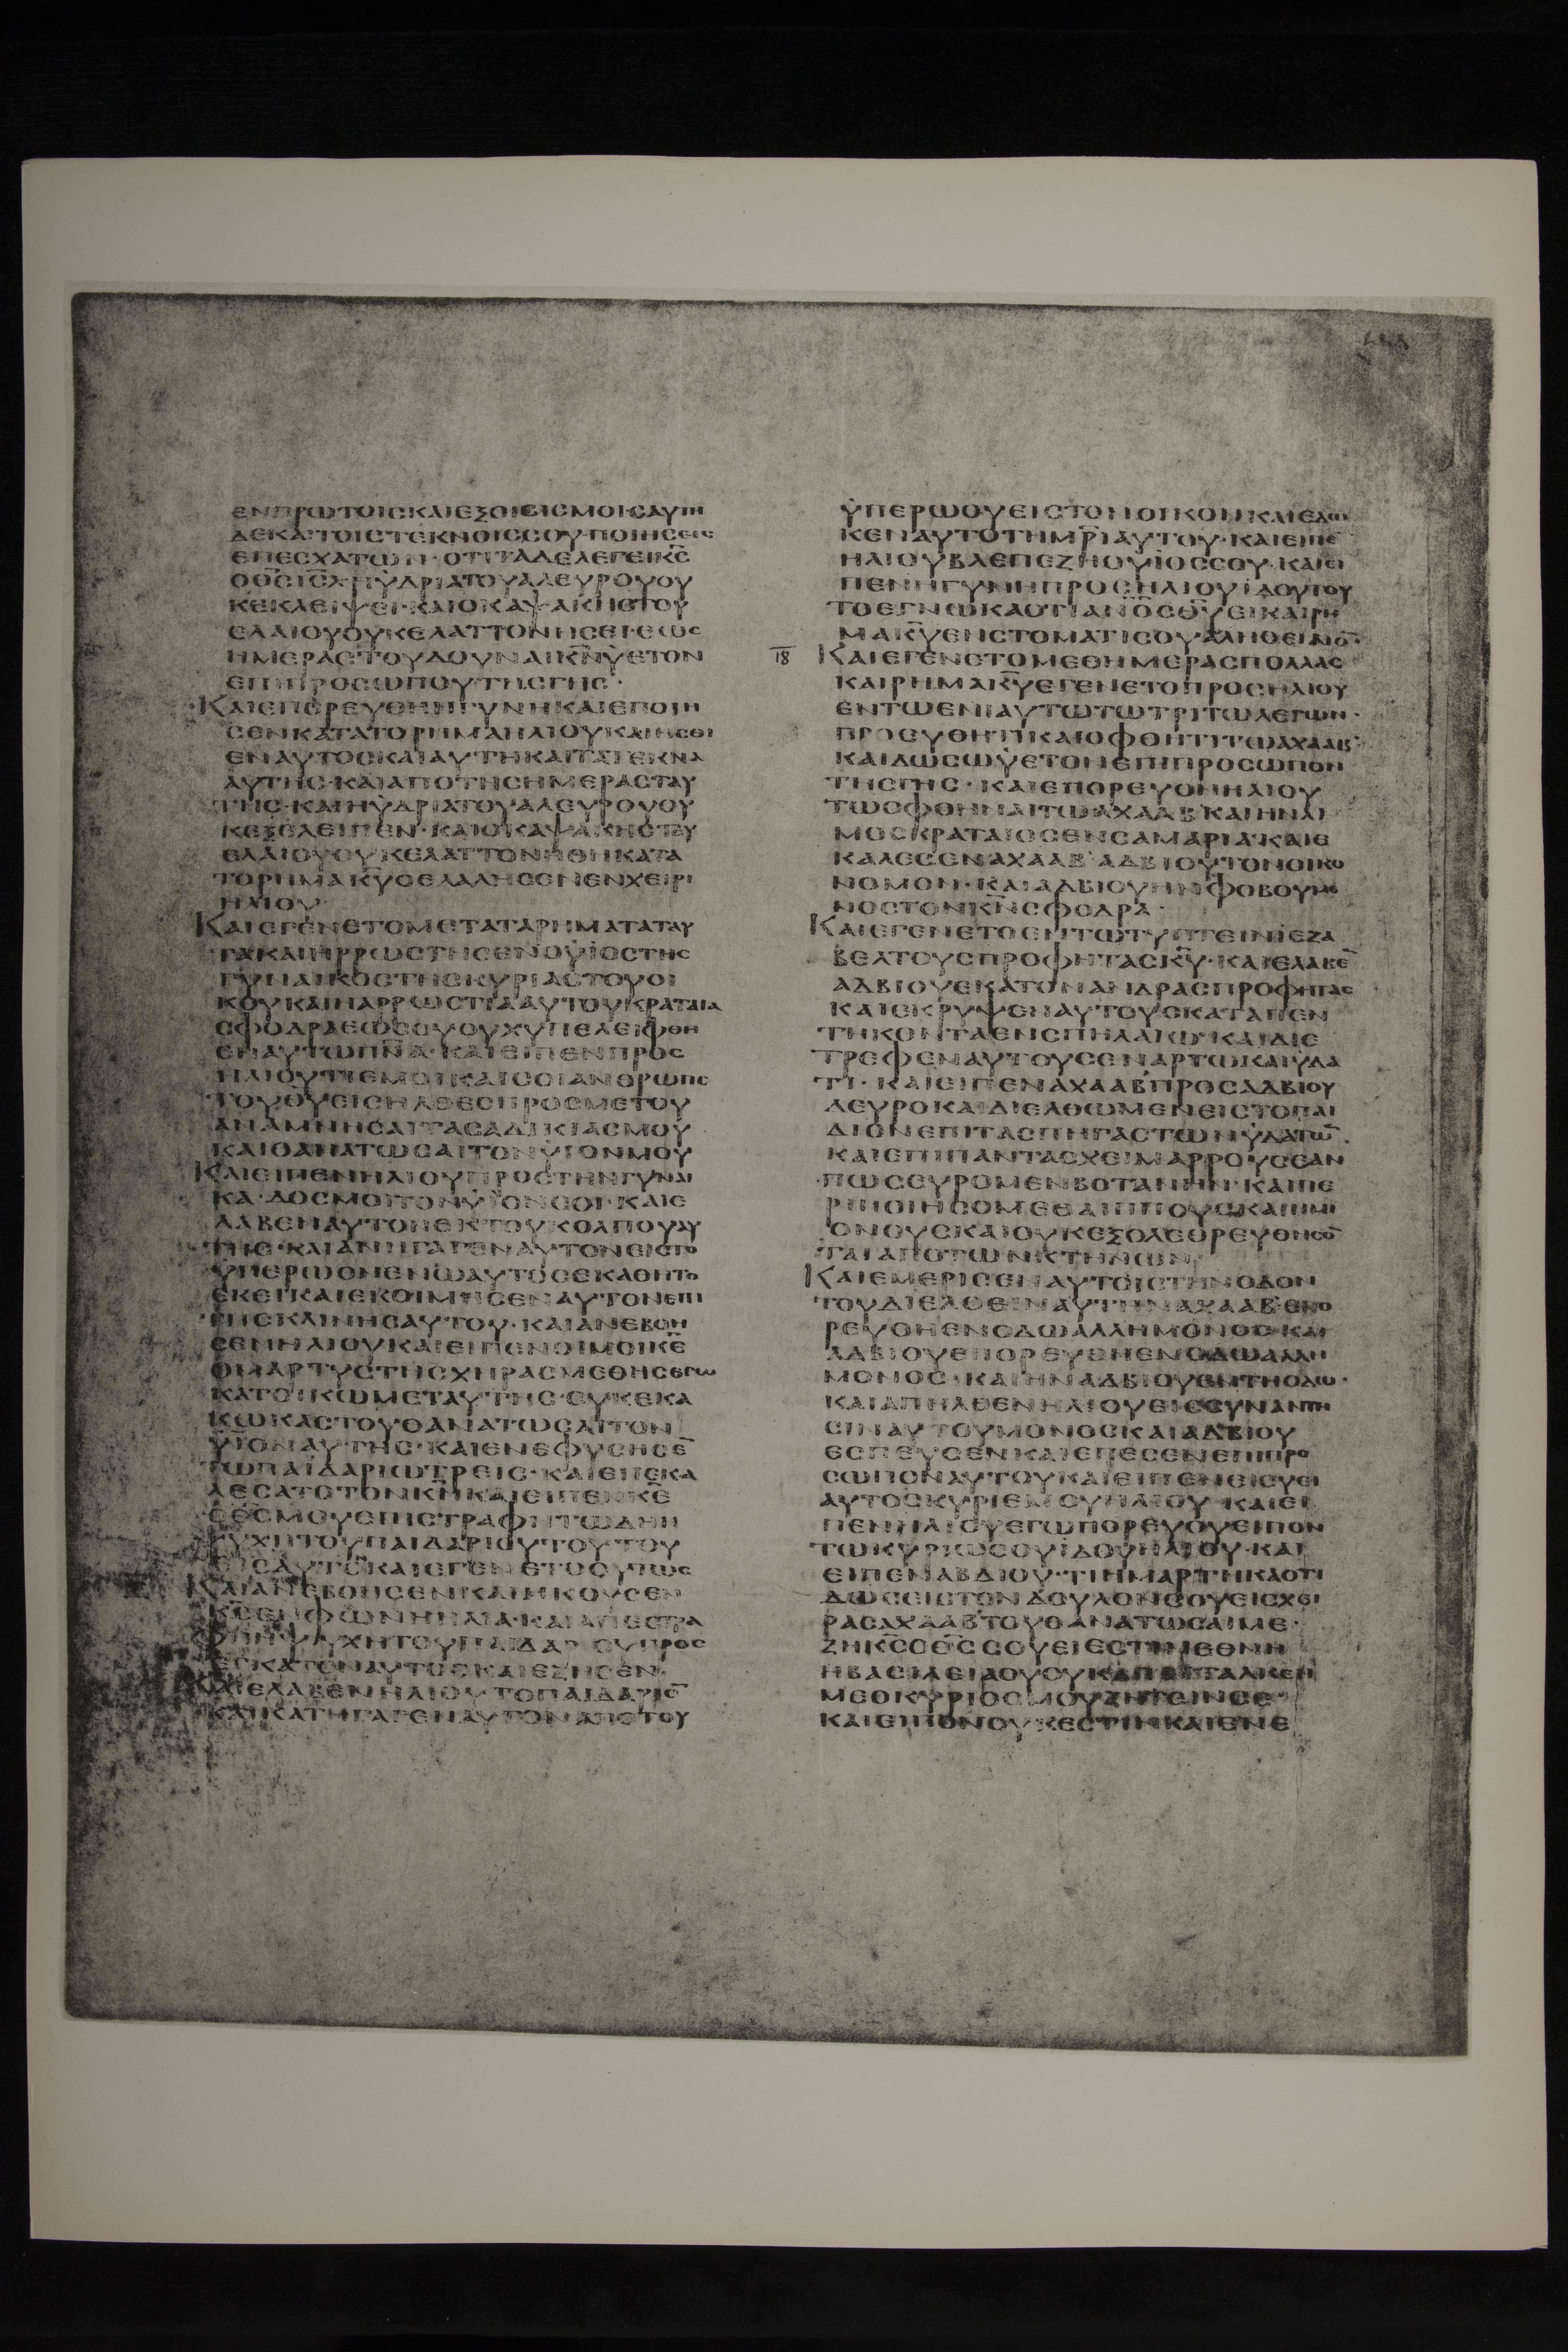 ΕΝΠΡΩΤΟΙΣΚΑΙΕΞΟΙΣΙΣΜΟΙΣΑΥΙΗ
ΔΕΚΑΙΤΟΙΣΤΕΚΝΟΙΣΣΟΥ·ΠΟΙΗΣΕΙΣ
ΕΠΕΣΧΑΤΩΝ·ΟΤΙΤΑΔΕΛΕΓΕΙΚ̅Σ̅
ΟΘ̅Σ̅Ι̅Σ̅Λ̅ΗΫΔΡΙΑΤΟΥΑΛΕΥΡΟΥΟΥ
ΚΕΚΛΕΙΨΕΙ·ΚΑΙΟΚΑΨΑΚΗΣΤΟΥ
ΕΛΑΙΟΥΟΥΚΕΛΑΤΤΟΝΗΣΕΙ·ΕΩΣ
ΗΜΕΡΑΣΤΟΥΔΟΥΝΑΙΚ̅Ν̅ΫΕΤΟΝ
ΕΠΙΠΡΟΣΩΠΟΥΤΗΣΓΗΣ·
ΚΑΙΕΠΟΡΕΥΘΗΗΓΥΝΗΚΑΙΕΠΟΙΗ
ΣΕΝΚΑΤΑΤΟΡΗΜΑΗΛΙΟΥΚΑΙΗΣΘΙ
ΕΝΑΥΤΟΣΚΑΙΑΥΤΗΚΑΙΤΑΤΕΚΝΑ
ΑΥΤΗΣ·ΚΑΙΑΠΟΤΗΣΗΜΕΡΑΣΤΑΥ
ΤΗΣ·ΚΑΙΗΫΔΡΙΑΤΟΥΑΛΕΥΡΟΥΟΥ
ΚΕΞΕΛΕΙΠΕΝ·ΚΑΙΟΚΑΨΑΚΗΣΤΟΥ
ΕΛΑΙΟΥΟΥΚΕΛΑΤΤΟΝΗΘΗΚΑΤΑ
ΤΟΡΗΜΑΚ̅Υ̅ΟΕΛΑΛΗΣΕΝΕΝΧΕΙΡΙ
ΗΛΙΟΥ·
ΚΑΙΕΓΕΝΕΤΟΜΕΤΑΤΑΡΗΜΑΤΑΤΑΥ
ΤΑΚΑΙΗΡΡΩΣΤΗΣΕΝΟΫΙΟΣΤΗΣ
ΓΥΝΑΙΚΟΣΤΗΣΚΥΡΙΑΣΤΟΥΟΙ
ΚΟΥΚΑΙΗΑΡΡΩΣΤΙΑΑΥΤΟΥΚΡΑΤΑΙΑ
ΣΦΟΔΡΑΕΩΣΟΥΟΥΧΥΠΕΛΕΙΦΘΗ
ΕΝΑΥΤΩΠΝ̅Α̅·ΚΑΙΕΙΠΕΝΠΡΟΣ
ΗΛΙΟΥΤΙΕΜΟΙΚΑΙΣΟΙΑΝΘΡΩΠΕ
ΤΟΥΘ̅Υ̅ΕΙΣΗΛΘΕΣΠΡΟΣΜΕΤΟΥ
ΑΝΑΜΝΗΣΑΙΤΑΣΑΔΙΚΙΑΣΜΟΥ
ΚΑΙΘΑΝΑΤΩΣΑΙΤΟΝΫΙΟΝΜΟΥ
ΚΑΙΕΙΠΕΝΗΛΙΟΥΠΡΟΣΤΗΝΓΥΝΑΙ
ΚΑ·ΔΟΣΜΟΙΤΟΝΫΙΟΝΣΟΥ·ΚΑΙΕ
ΛΑΒΕΝΑΥΤΟΝΕΚΤΟΥΚΟΛΠΟΥΑΥ
ΤΗΣ·ΚΑΙΑΝΗΓΑΓΕΝΑΥΤΟΝΕΙΣΤΟ
ΫΠΕΡΩΟΝΕΝΩΑΥΤΟΣΕΚΑΘΗΤΟ
ΕΚΕΙΚΑΙΕΚΟΙΜΙΣΕΝΑΥΤΟΝΕΠΙ
ΤΗΣΚΛΙΝΗΣΑΥΤΟΥ·ΚΑΙΑΝΕΒΟΗ
ΣΕΝΗΛΙΟΥΚΑΙΕΙΠΕΝΟΙΜΟΙΚ̅Ε̅
ΟΜΑΡΤΥΣΤΗΣΧΗΡΑΣΜΕΘΗΣΕΓΩ
ΚΑΤΟΙΚΩΜΕΤΑΥΤΗΣ·ΣΥΚΕΚΑ
ΚΩΚΑΣΤΟΥΘΑΝΑΤΩΣΑΙΤΟΝ
ΫΙΟΝΑΥΤΗΣ·ΚΑΙΕΝΕΦΥΣΗΣΕ̅
ΤΩΠΑΙΔΑΡΙΩΤΡΕΙΣ·ΚΑΙΕΠΕΚΑ
ΛΕΣΑΤΟΤΟΝΚ̅Ν̅ΚΑΙΕΙΠΕΝΚ̅Ε̅
ΟΘ̅Σ̅ΜΟΥΕΠΙΣΤΡΑΦΗΤΩΔΗΗ
ΨΥΧΗΤΟΥΠΑΙΔΑΡΙΟΥΤΟΥΤΟΥ
ΕΙΣΑΥΤΟ̅ΚΑΙΕΓΕΝΕΤΟΟΥΤΩΣ
ΚΑΙΑΝΕΒΟΗΣΕΝΚΑΙΗΚΟΥΣΕΝ
Κ̅Σ̅ΕΝΦΩΝΗΗΛΙΑ·ΚΑΙΑΠΕΣΤΡΑ
ΦΗΗΨΥΧΗΤΟΥΠΑΙΔΑΡΙΟΥΠΡΟΣ
ΕΓΚΑΤΟΝΑΥΤΟΥΚΑΙΕΖΗΣΕΝ·
ΚΑΙΕΛΑΒΕΝΗΛΙΟΥΤΟΠΑΙΔΑΡΙΟ̅
ΚΑΙΚΑΤΗΓΑΓΕΝΑΥΤΟΝΑΠΟΤΟΥ
ΫΠΕΡΩΟΥΕΙΣΤΟΝΟΙΚΟΝΚΑΙΕΔΩ
ΚΕΝΑΥΤΟΤΗΜ̅Ρ̅Ι̅ΑΥΤΟΥ·ΚΑΙΕΙΠΕ̅
ΗΛΙΟΥΒΛΕΠΕΖΗΟΥΪΟΣΣΟΥ·ΚΑΙΕΙ
ΠΕΝΗΓΥΝΗΠΡΟΣΗΛΙΟΥΪΔΟΥΤΟΥ
ΤΟΕΓΝΩΚΑΟΤΙΑΝ̅Ο̅Σ̅Θ̅Υ̅ΕΙΚΑΙΡΗ
ΜΑΚ̅Υ̅ΕΝΣΤΟΜΑΤΙΣΟΥΑΛΗΘΕΙΝΟ̅
18
ΚΑΙΕΓΕΝΕΤΟΜΕΘΗΜΕΡΑΣΠΟΛΛΑΣ
ΚΑΙΡΗΜΑΚ̅Υ̅ΕΓΕΝΕΤΟΠΡΟΣΗΛΙΟΥ
ΕΝΤΩΕΝΙΑΥΤΩΤΩΤΡΙΤΩΛΕΓΩΝ·
ΠΟΡΕΥΘΗΤΙΚΑΙΟΦΘΗΤΙΤΩΑΧΑΑΒ
ΚΑΙΔΩΣΩΫΕΤΟΝΕΠΙΠΡΟΣΩΠΟΝ
ΤΗΣΓΗΣ·ΚΑΙΕΠΟΡΕΥΘΗΗΛΙΟΥ
ΤΩΟΦΘΗΝΑΙΤΩΑΧΑΑΒ·ΚΑΙΗΛΙ
ΜΟΣΚΡΑΤΑΙΟΣΕΝΣΑΜΑΡΙΑ·ΚΑΙΕ
ΚΑΛΕΣΕΝΑΧΑΑΒΑΔΒΙΟΥΤΟΝΟΙΚΟ
ΝΟΜΟΝ·ΚΑΙΑΔΒΙΟΥΗΝΦΟΒΟΥΜΕ
ΝΟΣΤΟΝΚ̅Ν̅ΣΦΟΔΡΑ·
ΚΑΙΕΓΕΝΕΤΟΕΝΤΩΤΥΠΤΕΙΝΙΕΖΑ
ΒΕΛΤΟΥΣΠΡΟΦΗΤΑΣΚ̅Υ̅·ΚΑΙΕΛΑΒΕ̅
ΑΔΒΙΟΥΕΚΑΤΟΝΑΝΔΡΑΣΠΡΟΦΗΤΑΣ
ΚΑΙΕΚΡΥΨΕΝΑΥΤΟΥΣΚΑΤΑΠΕΝ
ΤΗΚΟΝΤΑΕΝΣΠΗΛΑΙΩ·ΚΑΙΔΙΕ
ΤΡΕΦΕΝΑΥΤΟΥΣΕΝΑΡΤΩΚΑΙΫΔΑ
ΤΙ·ΚΑΙΕΙΠΕΝΑΧΑΑΒΠΡΟΣΑΔΒΙΟΥ
ΔΕΥΡΟΚΑΙΔΙΕΛΘΩΜΕΝΕΙΣΤΟΠΑΙ
ΔΙΟΝΕΠΙΤΑΣΠΗΓΑΣΤΩΝΫΔΑΤΩ̅
ΚΑΙΕΠΙΠΑΝΤΑΣΧΕΙΜΑΡΡΟΥΣΕΑΝ
ΠΩΣΕΥΡΟΜΕΝΒΟΤΑΝΗΝ·ΚΑΙΠΕ
ΡΙΠΟΙΗΣΟΜΕΘΑΙΠΠΟΥΣΚΑΙΗΜΙ
ΟΝΟΥΣΚΑΙΟΥΚΕΞΟΛΕΘΡΕΥΘΗΣΟ̅
ΤΑΙΑΠΟΤΩΝΚΤΗΝΩΝ
ΚΑΙΕΜΕΡΙΣΕΝΑΥΤΟΙΣΤΗΝΟΔΟΝ
ΤΟΥΔΙΕΛΘΕΙΝΑΥΤΗΝΑΧΑΑΒ·ΕΠΟ
ΡΕΥΘΗΕΝΟΔΩΑΛΛΗΜΟΝΟΣ·ΚΑΙ
ΑΔΒΙΟΥΕΠΟΡΕΥΘΗΕΝΟΔΩΑΛΛΗ
ΜΟΝΟΣ·ΚΑΙΗΝΑΔΒΙΟΥΕΝΤΗΟΔΩ·
ΚΑΙΑΠΗΛΘΕΝΗΛΙΟΥΕΙΣΣΥΝΑΝΤΗ
ΣΙΝΑΥΤΟΥΜΟΝΟΣΚΑΙΑΔΒΙΟΥ
ΕΣΠΕΥΣΕΝΚΑΙΕΠΕΣΕΝΕΠΙΠΡΟ
ΣΩΠΟΝΑΥΤΟΥΚΑΙΕΙΠΕΝΕΙΣΥΕΙ
ΑΥΤΟΣΚΥΡΙΕΜΟΥΗΛΙΟΥ·ΚΑΙΕΙ
ΠΕΝΗΛΙΟΥΕΓΩΠΟΡΕΥΟΥΕΙΠΟΝ
ΤΩΚΥΡΙΩΣΟΥΪΔΟΥΗΛΙΟΥ·ΚΑΙ
ΕΙΠΕΝΑΒΔΙΟΥ·ΤΙΗΜΑΡΤΗΚΑΟΤΙ
ΔΩΣΕΙΣΤΟΝΔΟΥΛΟΝΣΟΥΕΙΣΧΕΙ
ΡΑΣΑΧΑΑΒΤΟΥΘΑΝΑΤΩΣΑΙΜΕ·
ΖΗΚ̅Σ̅ΟΘ̅Σ̅ΣΟΥΕΙΕΣΤΙΝΕΘΝΗ
ΗΒΑΣΙΛΕΙΑΟΥΟΥΚΑΠΕΣΤΑΛΚΕΝ
ΜΕΟΚΥΡΙΟΣΜΟΥΖΗΤΕΙΝΣΕ·
ΚΑΙΕΙΠΟΝΟΥΚΕΣΤΙΝΚΑΙΕΝΕ